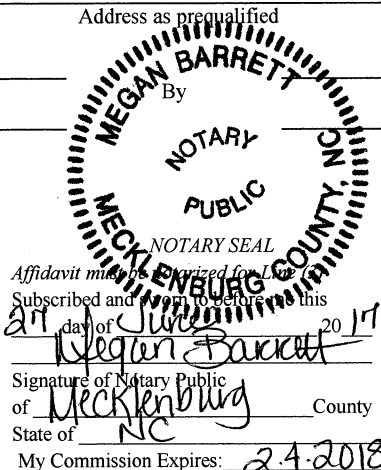 Address as prequalified
MEGAN BARRETT
By
NOTARY
PUBLIC
MECKLENBURG COUNTY, NC
NOTARY SEAL
Affidavit must be notarized for Line (
Subscribed and sworn to before me this
27 day of June 20 17
Megan Barrett
Signature of Notary Public
of Mecklenburg County
State of NC
My Commission Expires: 2.4.2018